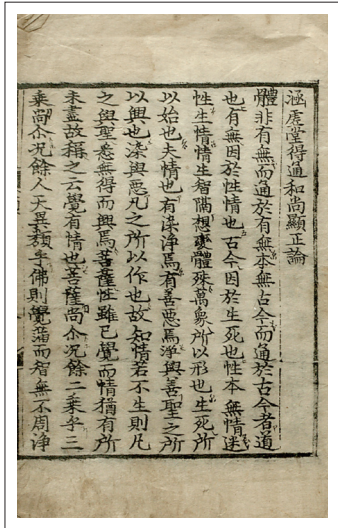 涵虛堂得通和尚顯正論
體非有無而通於有無本無古今而通於古今者道
也有無因於性情也古今因於生死也性本無情迷
性生情情生智隔想變體殊萬象所以形也生死所
以始也夫情也有染淨焉有善惡焉淨與善聖之所
以興也染與惡凡之所以作也故知情若不生則凡
之與聖悉無得而興焉菩薩性雖已覺而情猶有所
未盡故稱之云覺有情也菩薩尚尒況餘二乘乎三
乘尚尒況餘人天異類乎佛則覺滿而智無不周淨